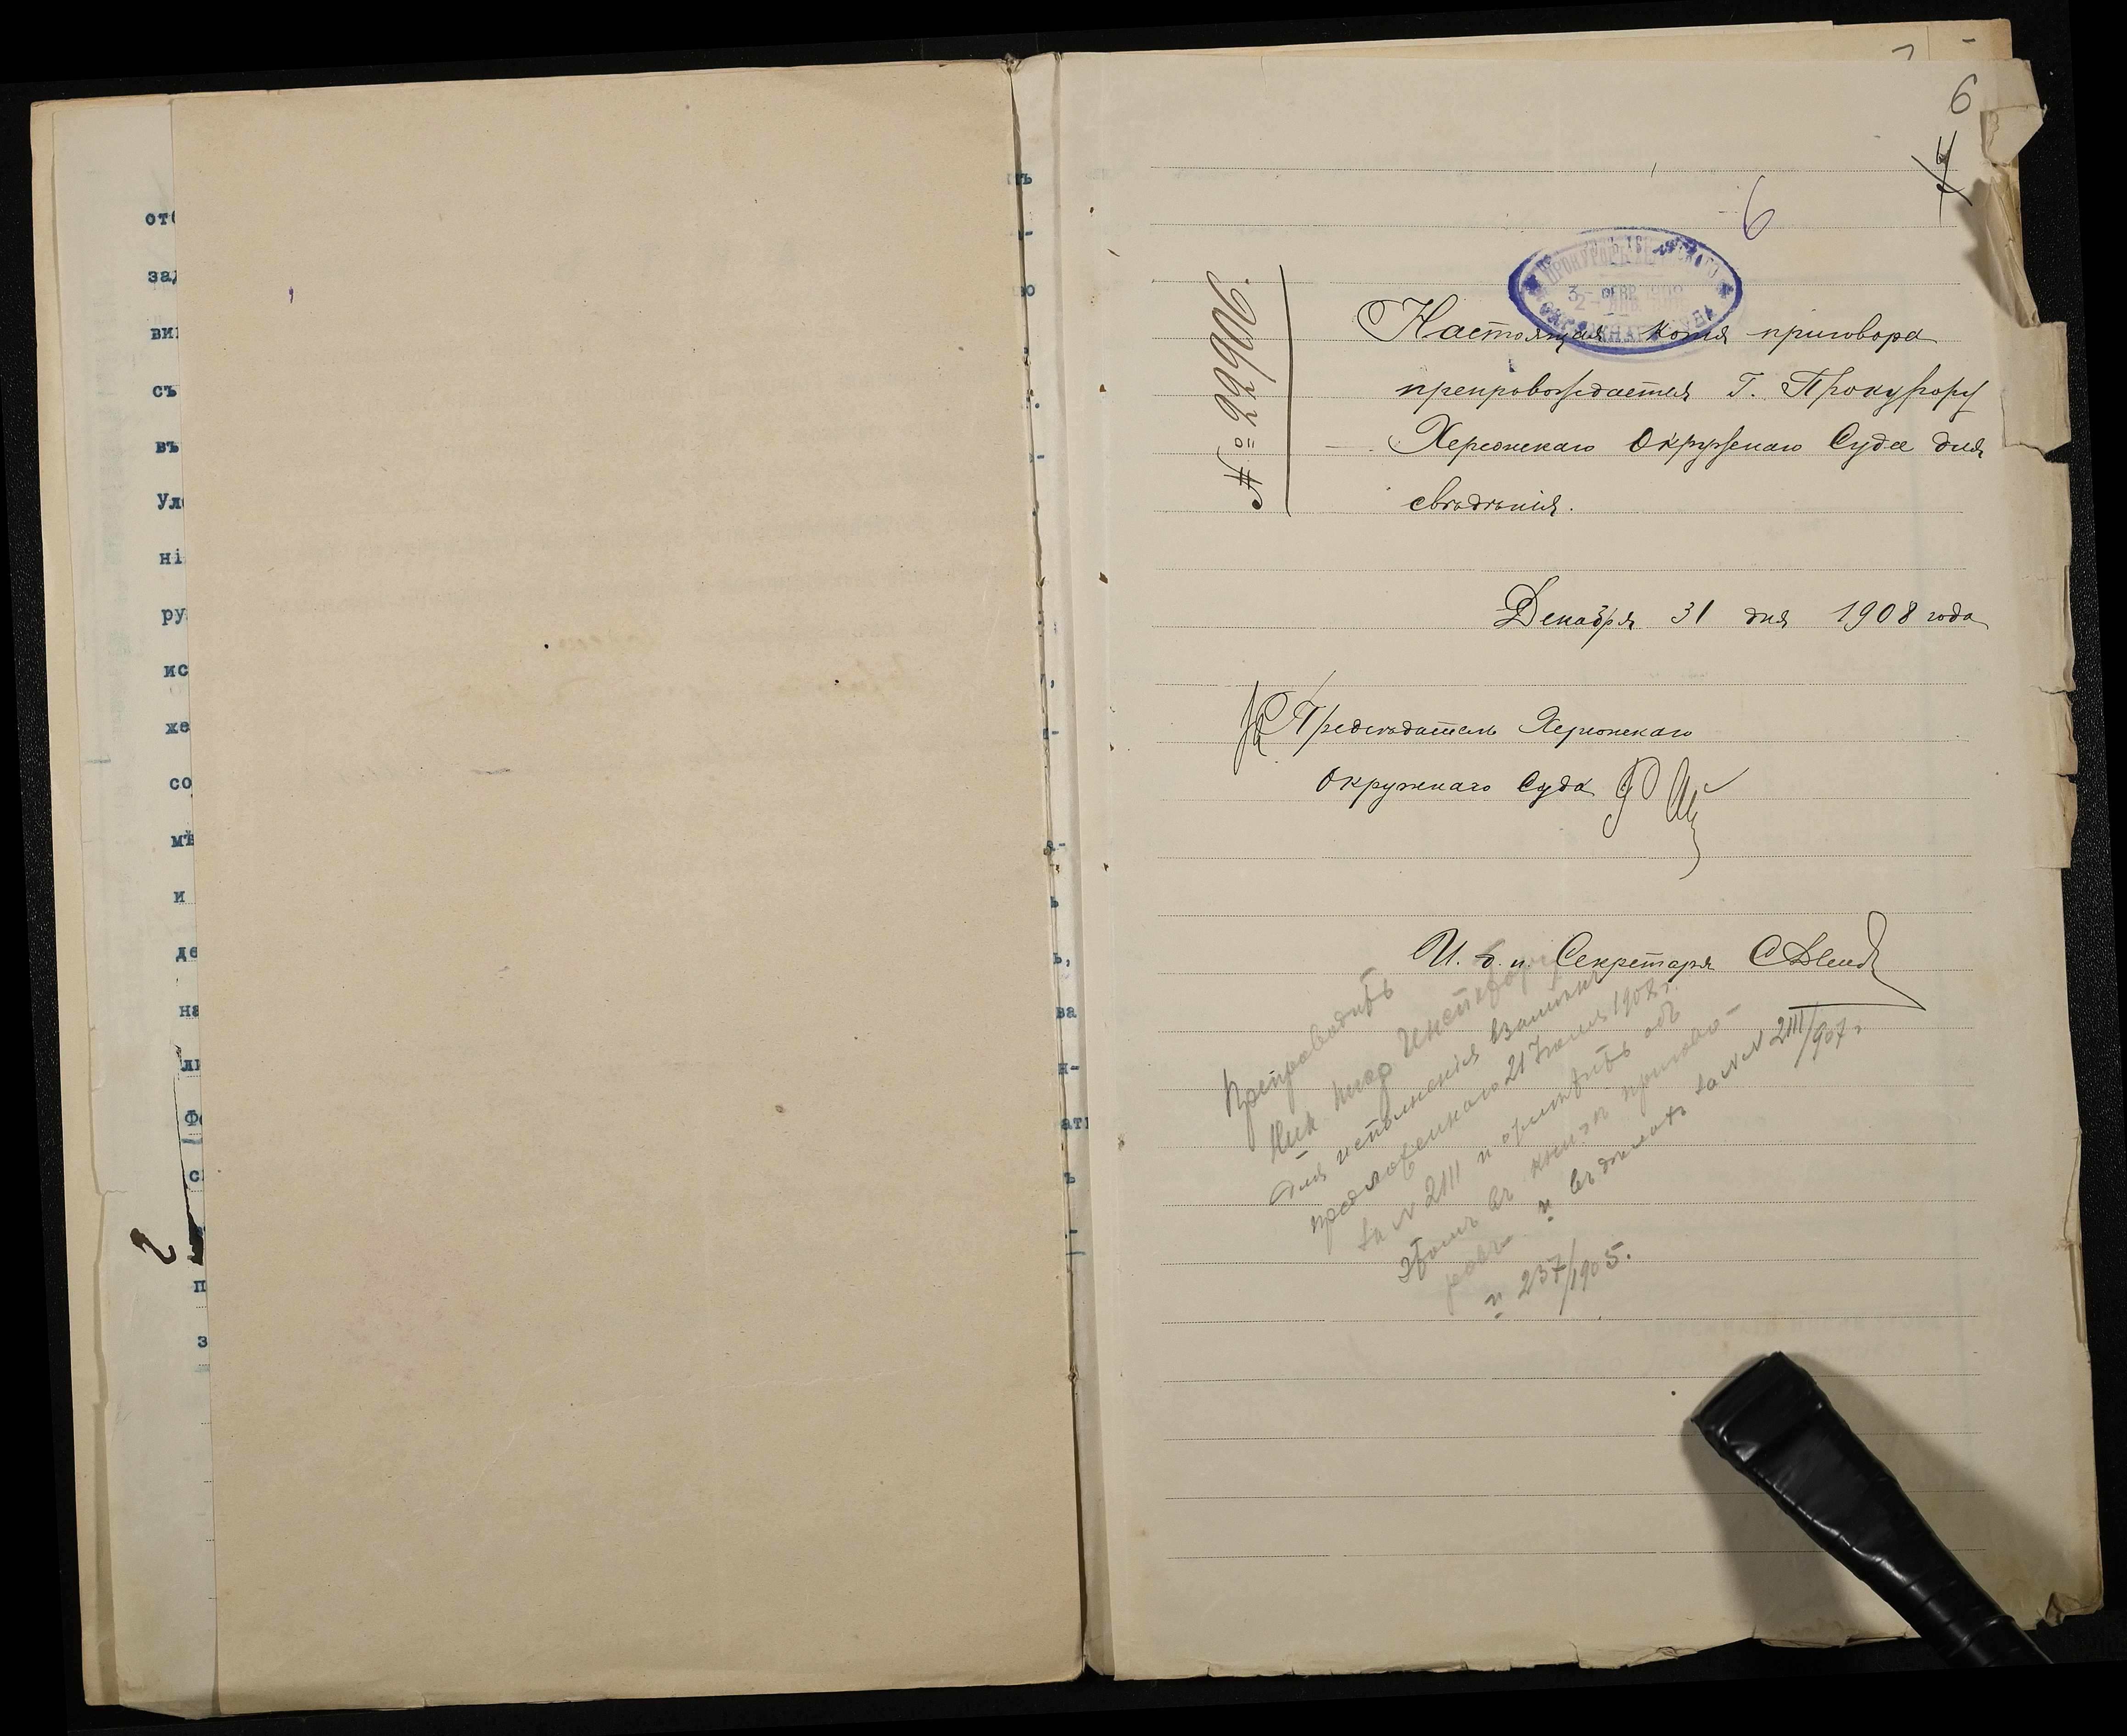 отб
зад
ви
съ
въ
Ул
ні
ру
ис
же
со
мѣ
и
де
на
ли
п
з
6
6
№ 22906.
ПРОКУРОРЪ
Настоящая копія приговора
препровождается Г. Прокурору
Херсонскаго Окружнаго Суда для
свѣдѣнія.
Декабря 31 дня 1908 года
Предсѣдатель Херсонскаго
Окружнаго Суда
И. д. п. Секретаря
Препроводить
Ник Тюр Инспектору
для исполненія взамѣнъ
предложеннаго 21 Іюля 1908 г.
за № 2111 и отмѣтить объ
этомъ въ книгѣ пригово-
ровъ и въ дѣлахъ за №№ 2111/907 г
и 237/1905.